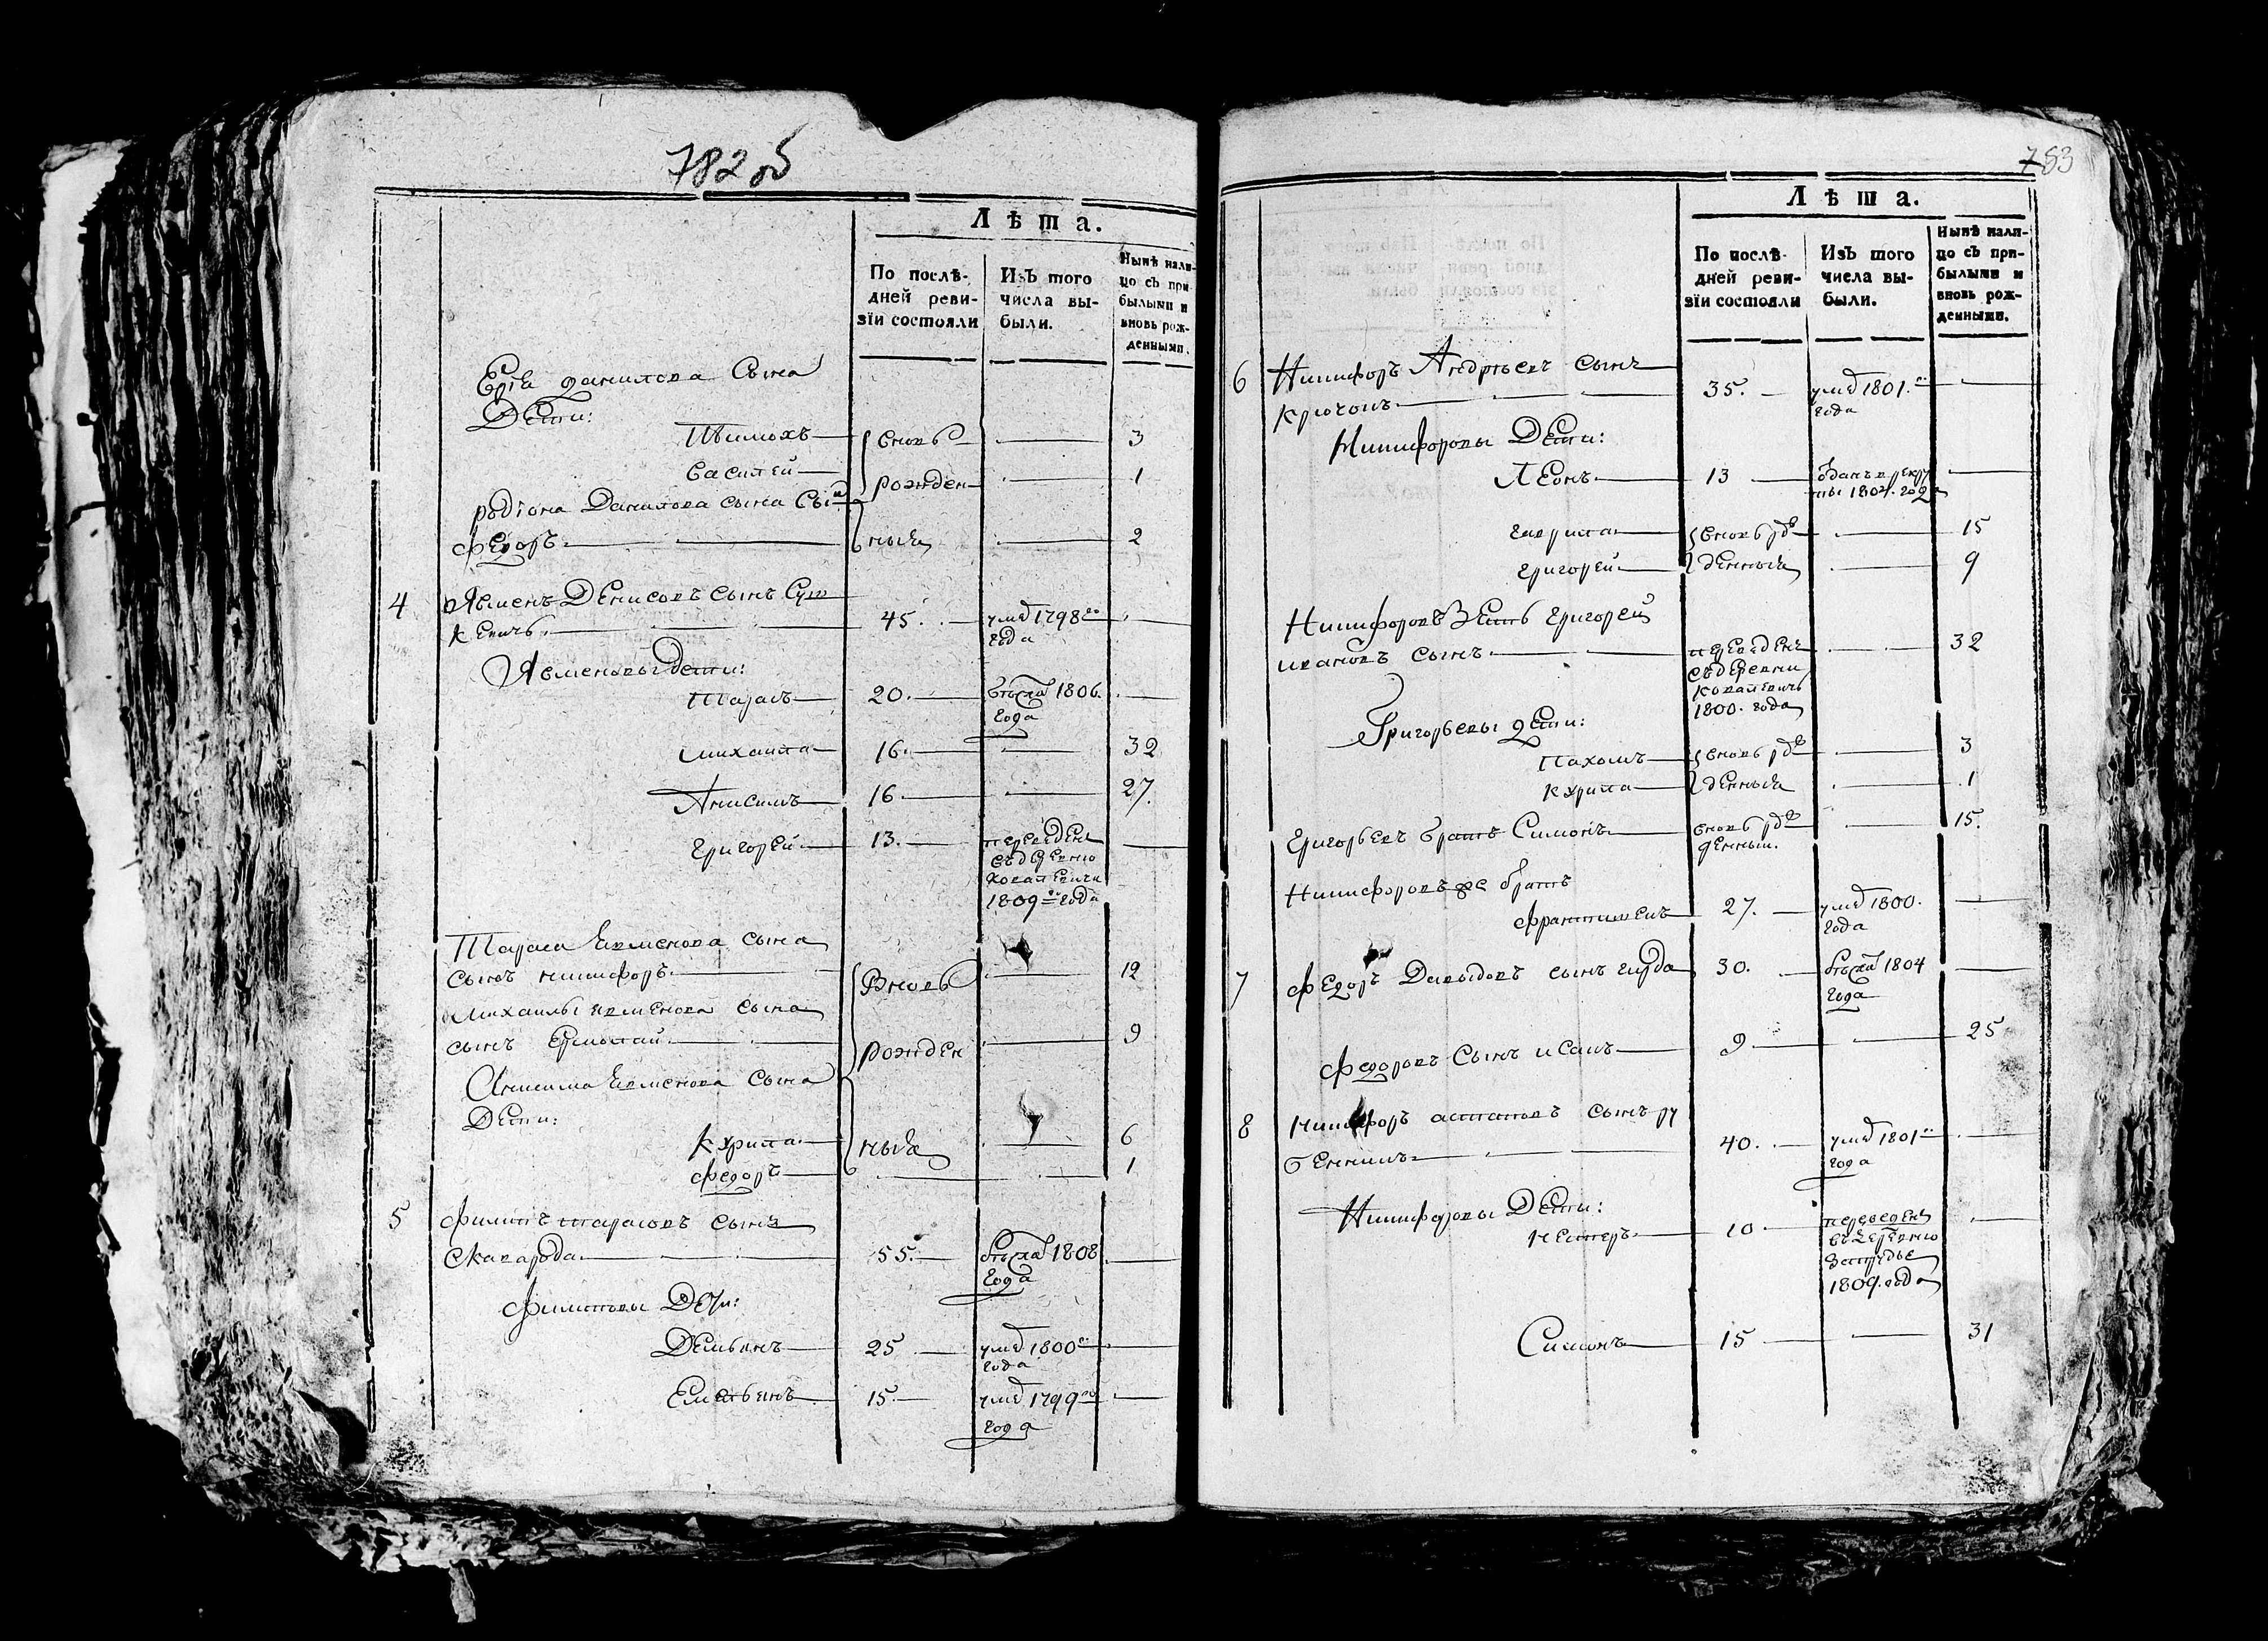 782 об
Лѣта.
По послѣ-
дней реви-
зіи состояли
Изъ того
числа вы-
были.
Нынѣ нали-
цо съ при
былыми и
вновь рож-
денными.
данилова Сына
Дети:
вновь 3
василей рожден 1
родіона Данилова сына
Федоръ ныя 2
4 Денисовъ сынъ
45. умеръ 1798го
года
дети:
Тарасъ 20. 1806.
года
михаила 16. 32
Анисимъ 16 27.
григорей 13. переведенъ
въ деревню
1809го года
Тараса сына
сынъ никифоръ Вновь 12
Михайлы сына
сынъ Ермолай рожден 9
Анисима сына
Дети:
курила ныя 6
федоръ 1
5 Филипъ тарасовъ сынъ
Скаварода 55. 1808
года
Филиповы Дети:
Демьянъ 25 умеръ 1800го
года
Емельянъ 15. умеръ 1799го
года
783
Лѣта.
По послѣ-
дней реви-
зіи состояли
Изъ того
числа вы-
были.
Нынѣ нали-
цо съ при-
былыми и
вновь рож-
денными.
6 Никифоръ Андрѣевъ сынъ
Крючокъ 35. умеръ 1801го
года
Никифоровы Дети:
Леонъ 13 отданъ в рекру
ты 1804. года
гаврила вновь рож 15
григорей денныя 9
Никифоровъ Зеть григорей
ивановъ сынъ переведенъ 32
съ деревни
1800. года
Григорьевы дети:
Пахомъ вновь рож 3
курила денныя 1
григорьевъ братъ Симонъ вновь рож 15.
денный.
Никифоровъ же братъ
27. умеръ 1800.
года
7 Федоръ Давыдовъ сынъ гирда 30. 1804
года
Федоровъ Сынъ исакъ 9 25
8 Никифоръ сынъ
40. умеръ 1801го
года
Никифоровы Дети:
нестеръ 10 переведенъ
въ деревню
1809. года
Симонъ 15 31